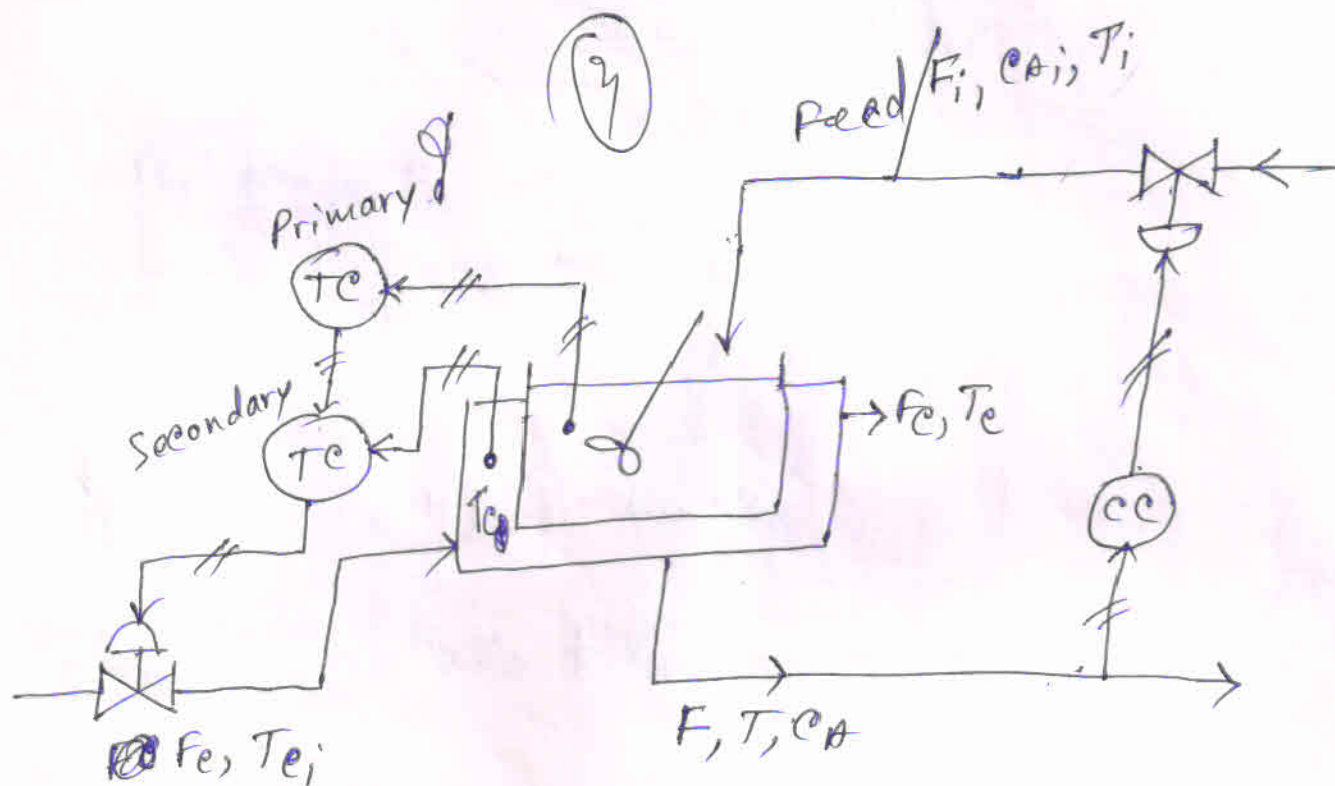 Feed
Fi, CAi, Ti
Primary
TC
Secondary
TC
Fc, Tc
Tc
CC
F, T, CA
Fc, Tci